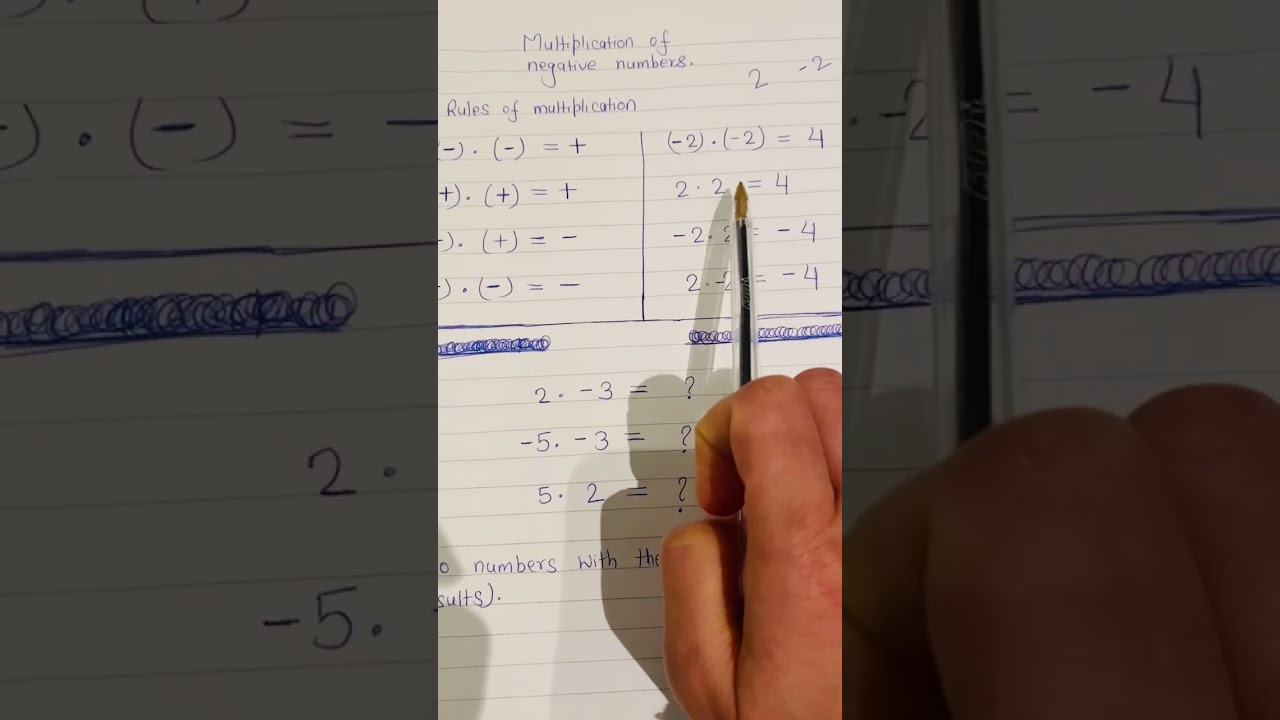 Multiplication of
negative numbers.
2 -2
Rules of multiplication
-) · (-) = +
(-2) · (-2) = 4
+) · (+) = +
2 · 2 = 4
-) · (+) = -
-2 · 2 = - 4
) · (-) = -
2 · -2 = - 4
2 · -3 = ?
-5 · -3 = ?
5 · 2 = ?
o numbers with the
sults).
) · (-) = -
2 ·
-5 ·
· -2 = - 4